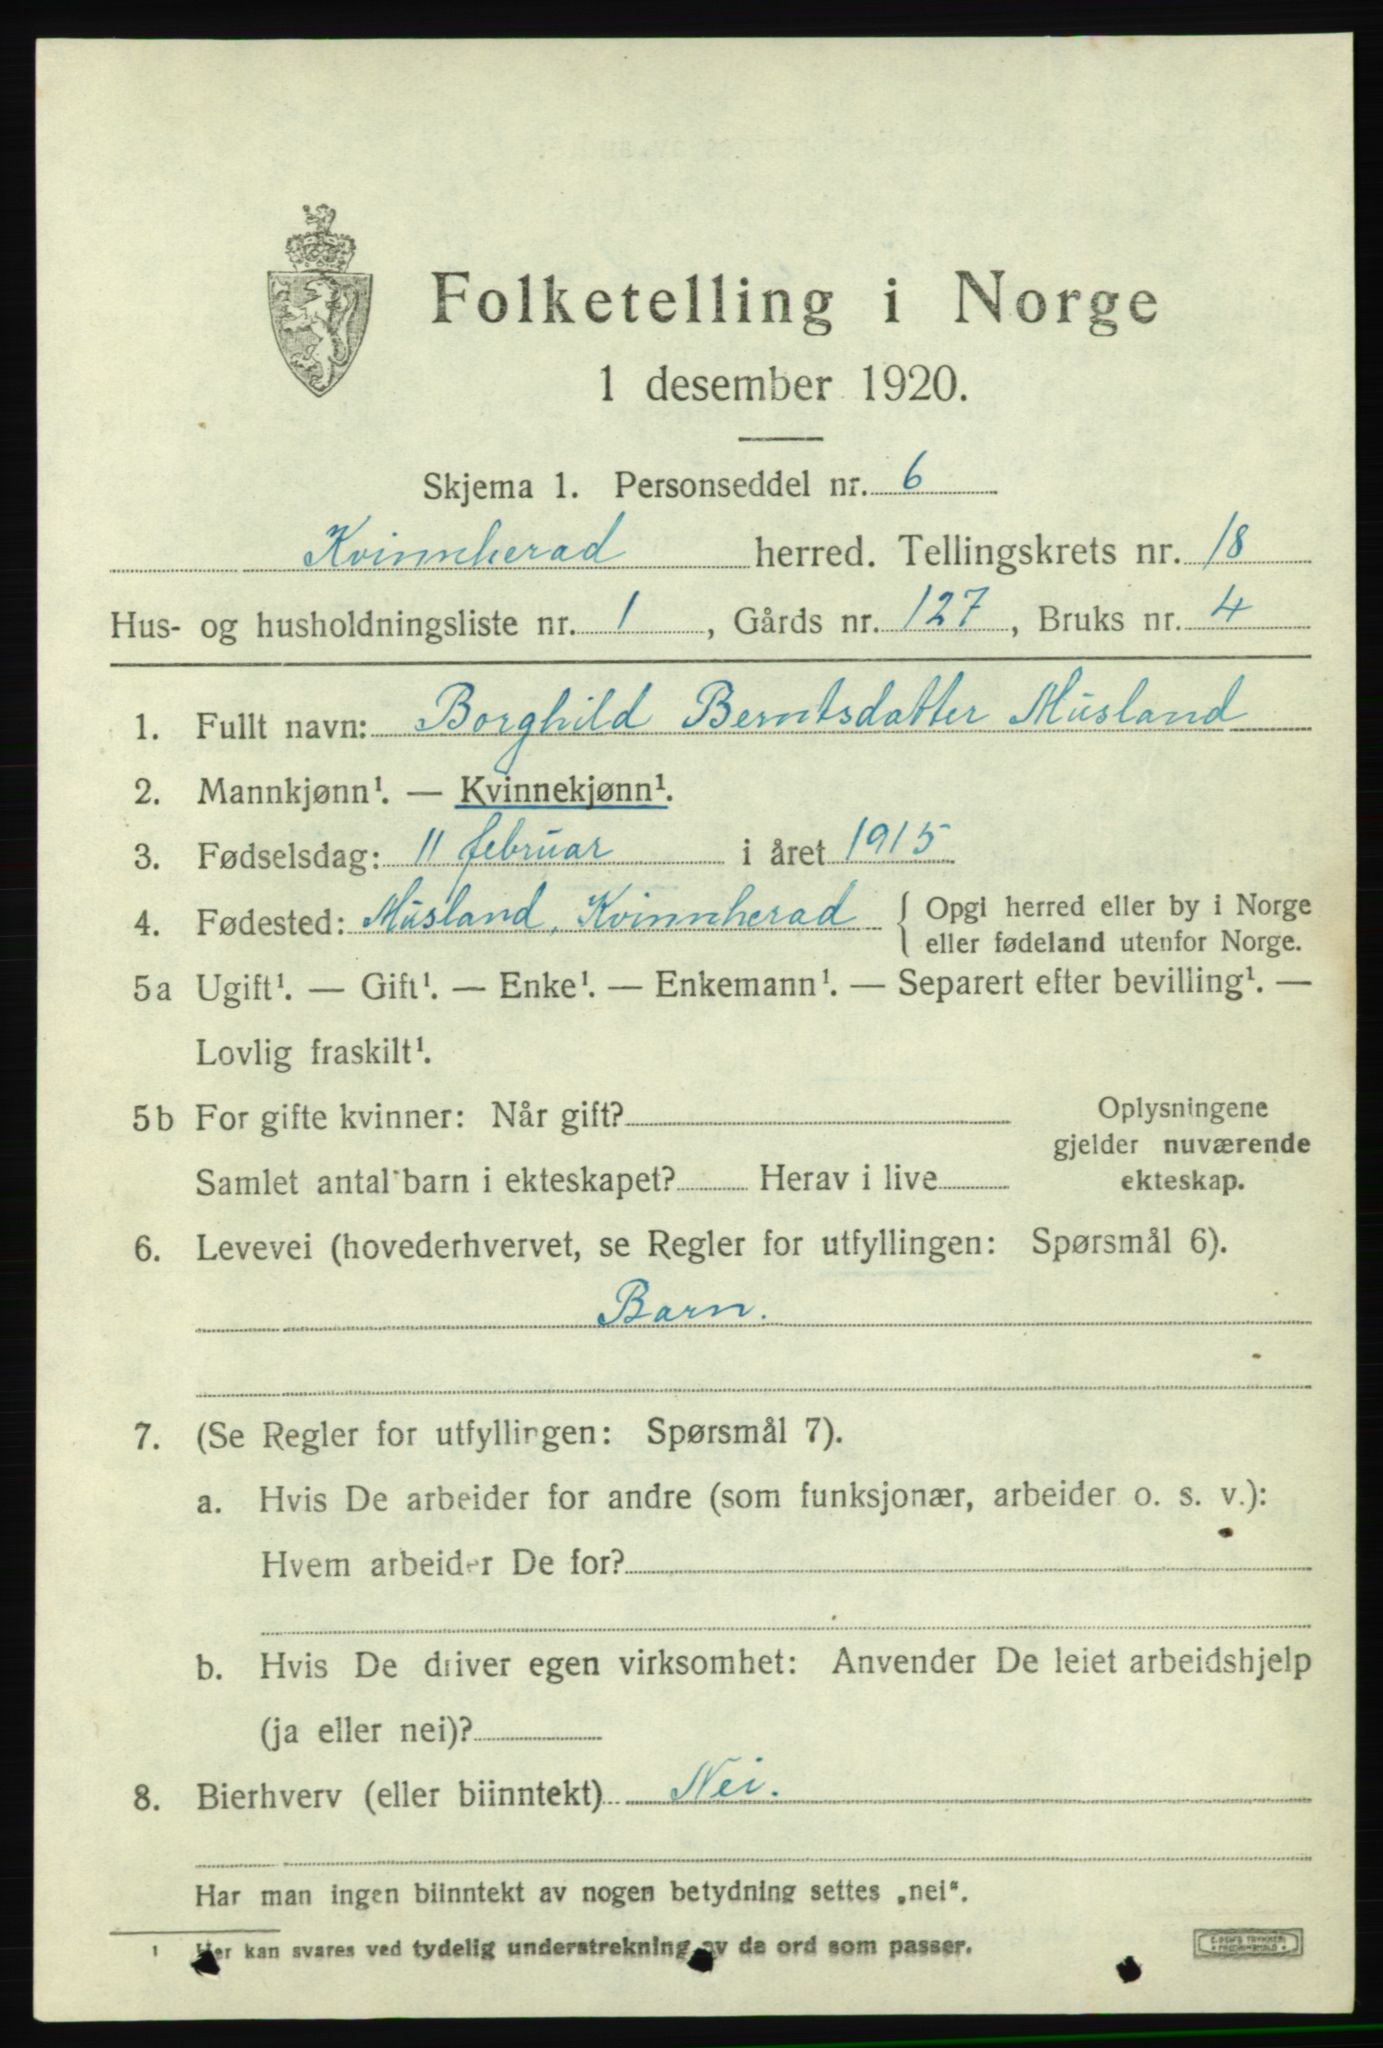 Folketelling i Norge
1 desember 1920.
Skjema 1. Personseddel nr. 6
Kvinnherad herred. Tellingskrets nr. 18
Hus- og husholdningsliste nr. 1, Gårds nr. 127, Bruks nr. 4
1. Fullt navn: Borghild Berntsdatter Musland
2. Mannkjønn¹. — Kvinnekjønn¹.
3. Fødselsdag: 11 februar i året 1915
4. Fødested: Musland, Kvinnherad { Opgi herred eller by i Norge
eller fødeland utenfor Norge.
5a Ugift¹. — Gift¹. — Enke¹. — Enkemann¹. — Separert efter bevilling¹. —
Lovlig fraskilt¹.
5b For gifte kvinner: Når gift?
Samlet antal barn i ekteskapet? Herav i live
Oplysningene
gjelder nuværende
ekteskap.
6. Levevei (hovederhvervet, se Regler for utfyllingen: Spørsmål 6).
Barn.
7. (Se Regler for utfyllingen: Spørsmål 7).
a. Hvis De arbeider for andre (som funksjonær, arbeider o. s. v.):
Hvem arbeider De for?
b. Hvis De driver egen virksomhet: Anvender De leiet arbeidshjelp
(ja eller nei)?
8. Bierhverv (eller biinntekt) Nei.
Har man ingen biinntekt av nogen betydning settes „nei“.
¹ Her kan svares ved tydelig understrekning av de ord som passer.